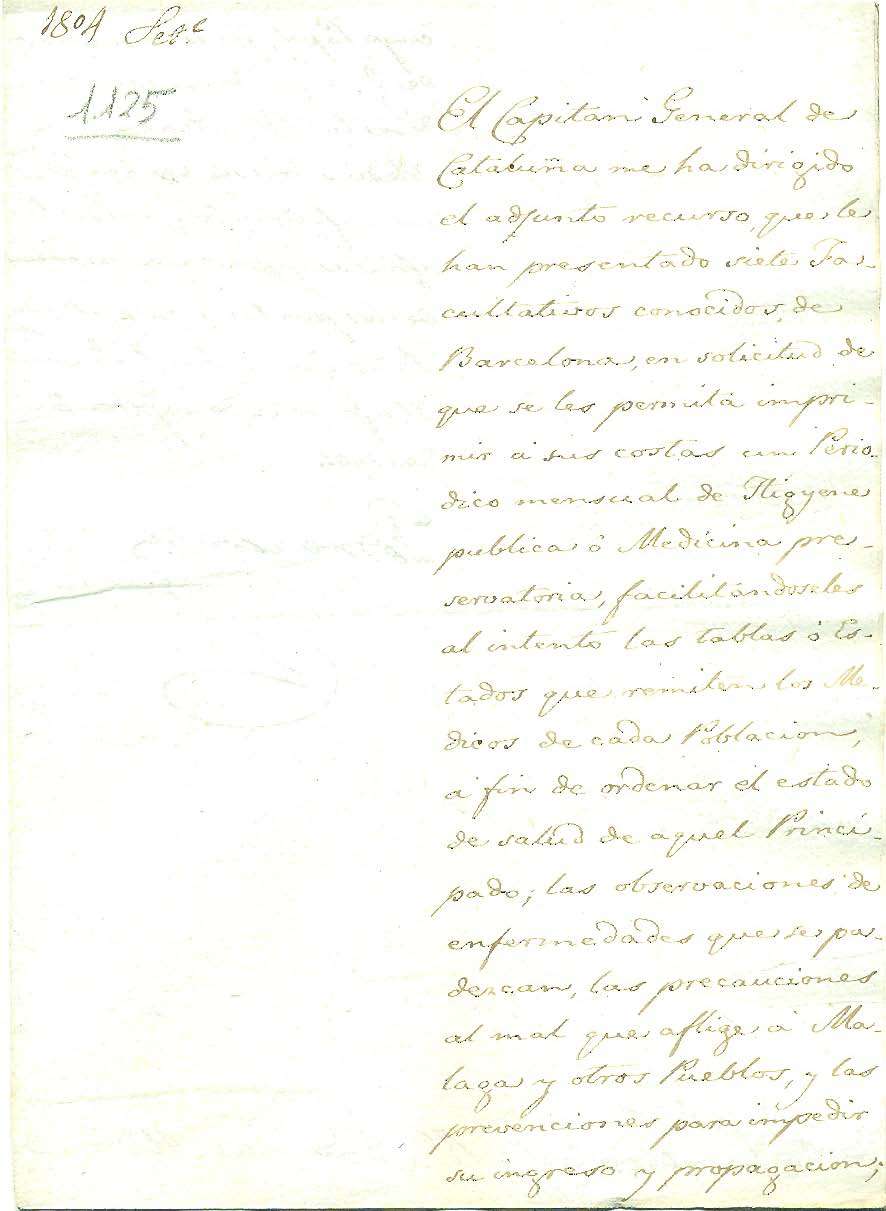 1804 Set.e
1125
El Capitan General de
Cataluña me ha dirigido
el adjunto recurso, que le
han presentado siete Fa-
cultativos conocidos, de
Barcelona, en solicitud de
que se les permita impri-
mir á sus costas un Perio-
dico mensual de Higyene
publica ó Medicina pre-
servatoria, facilitándoseles
al intento las tablas ó Es-
tados que remiten los Me-
dicos de cada Poblacion,
á fin de ordenar el estado
de salud de aquel Princi-
pado; las observaciones de
enfermedades que se pa-
dezcan, las precauciones
al mal que aflige á Ma-
laga y otros Pueblos, y las
prevenciones para impedir
su ingreso y propagacion;